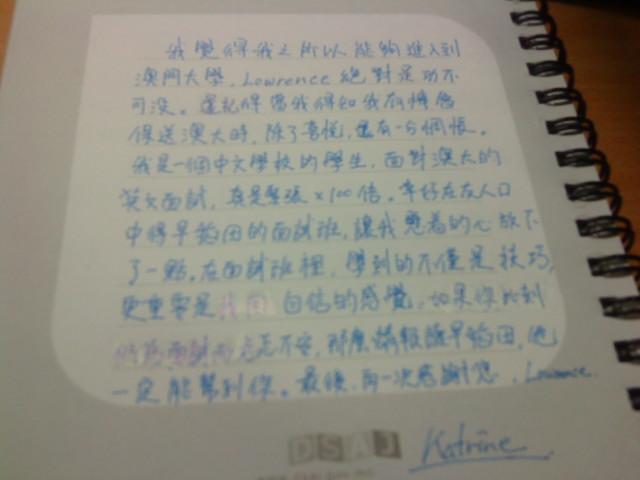 我覺得我之所以能夠進入到
澳門大學，Lawrence 絕對是功不
可沒。還記得當我得知我有機會
保送澳大時，除了喜悅，還有一份個恨。
我是一個中文學校的學生，面對澳大的
英文面試，真是緊張×100倍。幸好在友人口
中得早稻田的面試班，讓我憊着的心放下
了一點。在面試班裡，學到的不僅是技巧，
更重要是找回自信的感覺，如果你此刻
因為面試而忐忑不安，那麼請報讀早稻田，他
一定能幫到你。最後，再一次感謝您，Lawrence.
DSAJ
Katrine